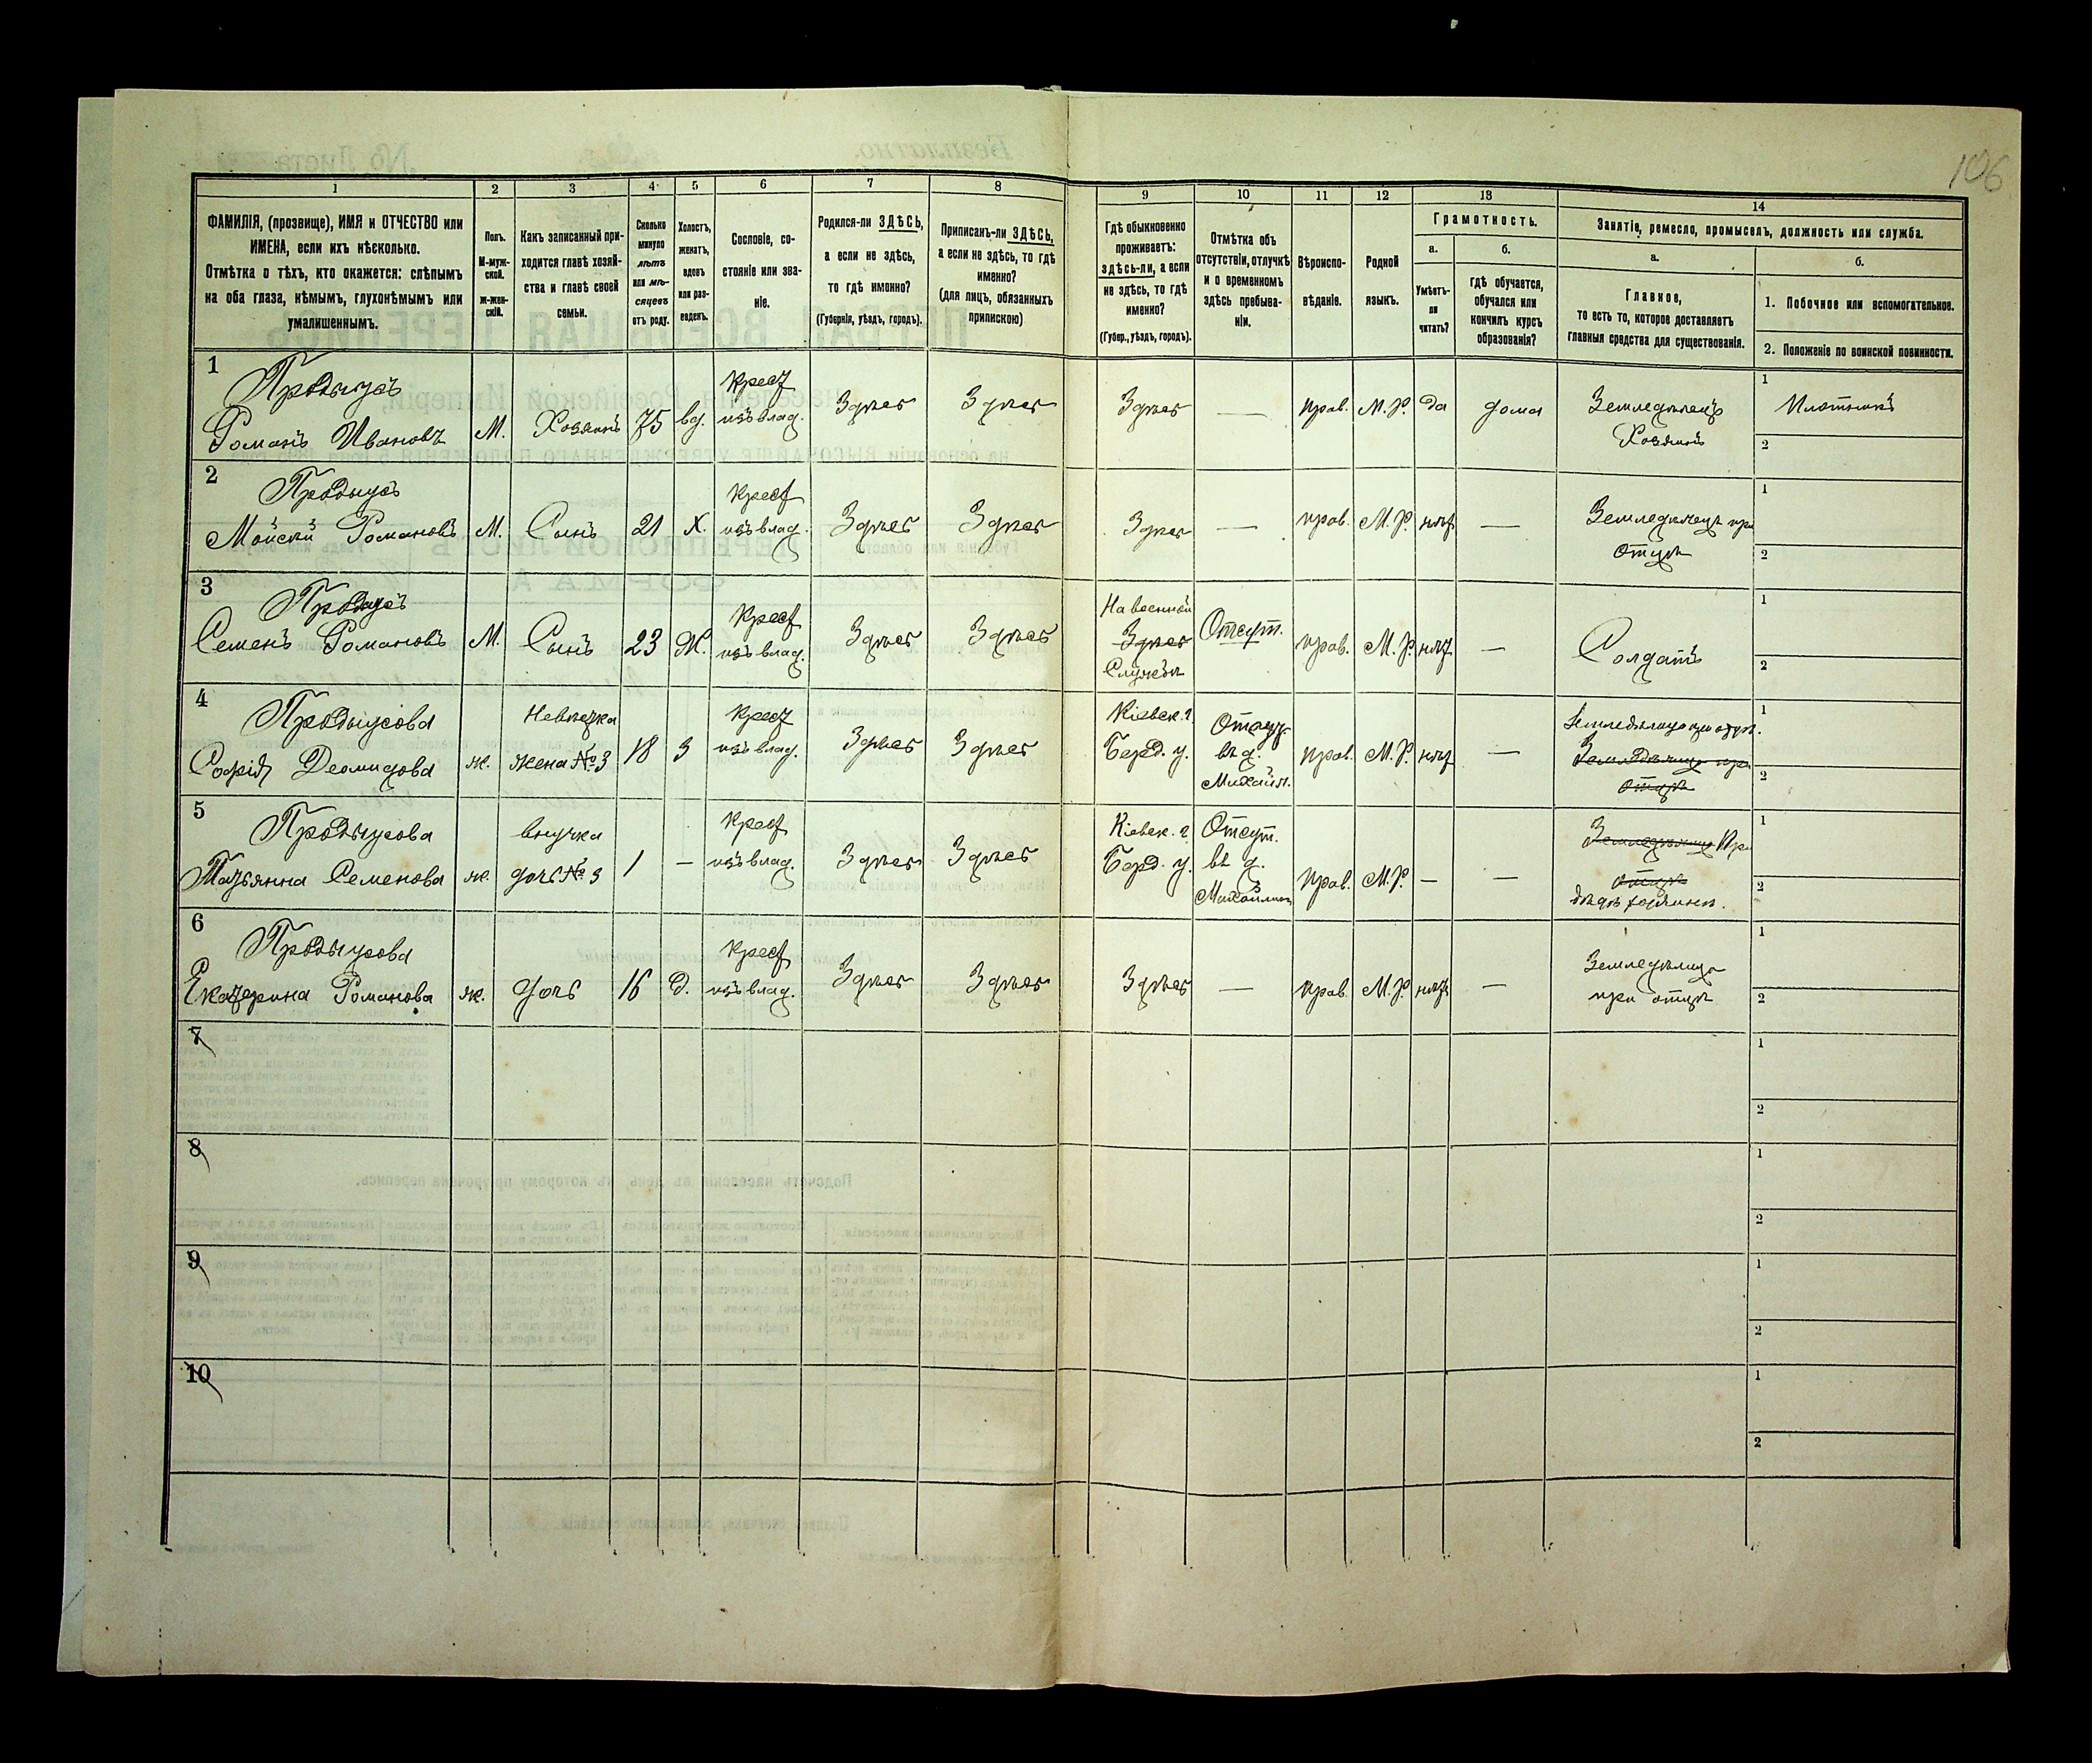 106
1 2 3 4 5 6 7 8 9 10 11 12 13 14
ФАМИЛІЯ, (прозвище), ИМЯ и ОТЧЕСТВО или
ИМЕНА, если ихъ нѣсколько.
Отмѣтка о тѣхъ, кто окажется: слѣпымъ
на оба глаза, нѣмымъ, глухонѣмымъ или
умалишеннымъ.
Полъ.
М-муж-
ской.
ж-жен-
скій.
Какъ записанный при-
ходится главѣ хозяй-
ства и главѣ своей
семьи.
Сколько
минуло
лѣтъ
или мѣ-
сяцевъ
отъ роду.
Холостъ,
женатъ,
вдовъ
или раз-
веденъ.
Сословіе, со-
стояніе или зва-
ніе.
Родился-ли ЗДѢСЬ,
а если не здѣсь,
то гдѣ именно?
(Губернія, уѣздъ, городъ).
Приписанъ-ли ЗДѢСЬ,
а если не здѣсь, то гдѣ
именно?
(для лицъ, обязанныхъ
припискою)
Гдѣ обыкновенно
проживаетъ:
здѣсь-ли, а если
не здѣсь, то гдѣ
именно?
(Губер., уѣздъ, городъ).
Отмѣтка объ
отсутствіи, отлучкѣ
и о временномъ
здѣсь пребыва-
ніи.
Вѣроиспо-
вѣданіе.
Родной
языкъ.
Грамотность.
а.
Умѣетъ-
ли
читать?
б.
гдѣ обучается,
обучался или
кончилъ курсъ
образованія?
Занятіе, ремесло, промыселъ, должность или служба.
а.
Главное,
то есть то, которое доставляетъ
главныя средства для существованія.
б.
1. Побочное или вспомогательное.
2. Положеніе по воинской повинности.
1
Продіусъ
Романъ Ивановъ М. Хозяинъ 75 вд. Крест. изъ влад. Здѣсь Здѣсь Здѣсь — прав. М.Р. да дома Земледѣлецъ Хозяинъ 1 Плотникъ
2
2
Продіусъ
Мойсѣй Романовъ М. Сынъ 21 Х. Крест. изъ влад. Здѣсь Здѣсь Здѣсь — прав. М.Р. нѣт — Земледѣлецъ при отцѣ 1
2
3
Продіусъ
Семенъ Романовъ М. Сынъ 23 Ж. Крест. изъ влад. Здѣсь Здѣсь На военной Здѣсь Службѣ Отсут. прав. М.Р. нѣт — Солдатъ 1
2
4
Продіусова
Софія ж. Невѣстка жена №3 18 З Крест. изъ влад. Здѣсь Здѣсь Кіевск. г. Берд. у. Отсут. въ д. Михайл. прав. М.Р. нѣт — Земледѣлица при отцѣ. Земледѣлица при отцѣ 1
2
5
Продіусова
Татьянна Семенова ж. внучка дочь №3 1 — Крест. изъ влад. Здѣсь Здѣсь Кіевск. г. Берд. у. Отсут. въ д. прав. М.Р. — — Земледѣлица При отцѣ дѣдѣ хозяинѣ. 1
2
6
Продіусова
Екатерина Романова ж. дочь 16 Д. Крест. изъ влад. Здѣсь Здѣсь Здѣсь — прав. М.Р. нѣт — Земледѣлица при отцѣ 1
2
7 1
2
8 1
2
9 1
2
10 1
2